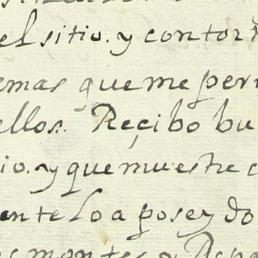 el sitio. y contor
emas que me per
ellos. Reçibo bu
io. y que muestre
ente lo a poseydo
montes y